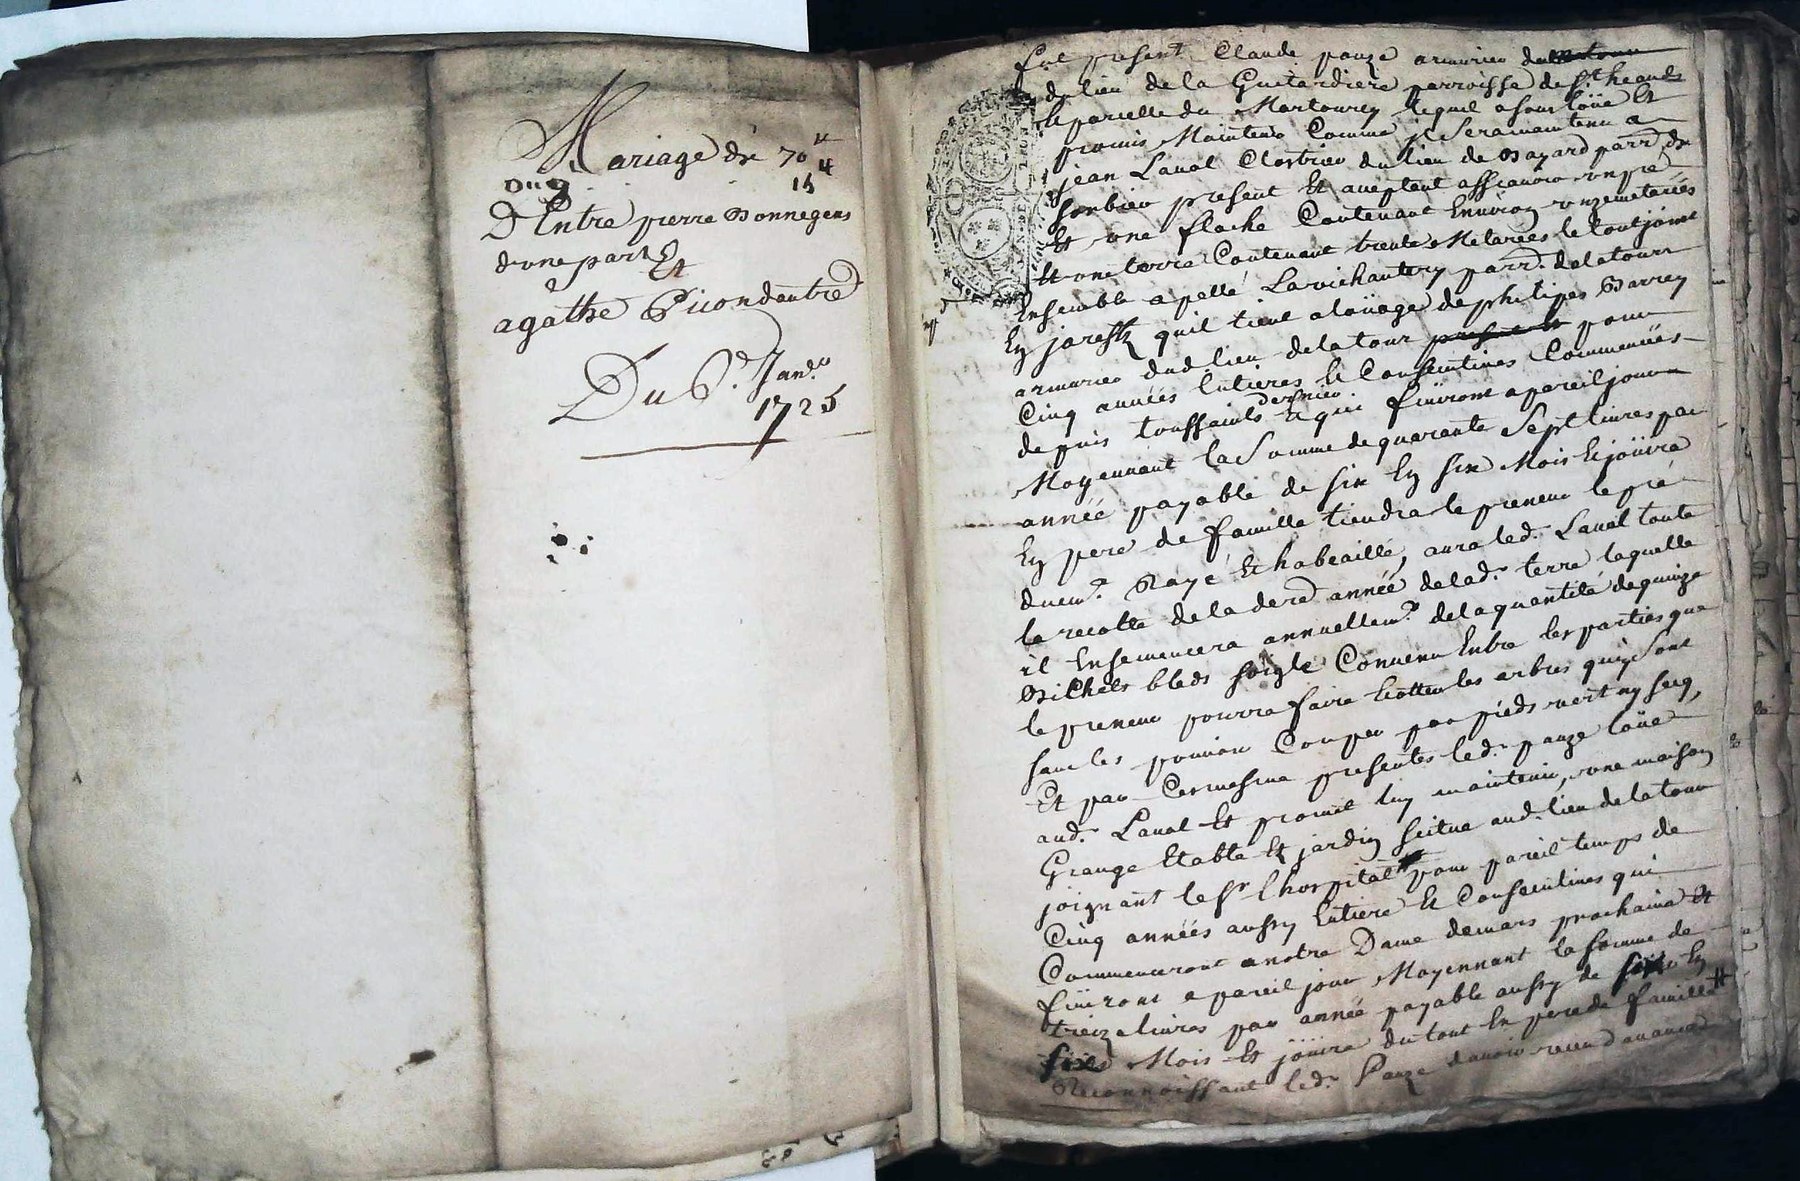 Mariage de 70
15
D'Entre pierre Bonnegens
d'une part Et
agathe Picon d'autre
Du 6e. Janer.
1725
fut present Claude pauze armurier
du lieu de la Guetardiere parroisse de St heand
parcelle du Martourey lequel a sous loüé Et
promis Maintenir Comme Il sera maintenu a
jean Laval Clostrier du lieu de Bayard parr.
Sorbier present Et aceptant assçavoir un pré
Et une flache Contenant Environ onze metarées
Et une terre Contenant trente Metarées le tout joint
Ensemble apellé La vichantery parr. de la tour
En jarestz quil tient a loüage de philipes Barrey
armurier dud. lieu de la tour pour
Cinq années Entieres Et Consecutives Commencées
depuis toussaints dernier Et qui finiront a pareil jour
Moyennant la Somme de quarante Sept livres par
année payable de six En six Mois Et joüira
En pere de famille tiendra le preneur le pré
duem.t Rayé Et habeaillé, aura led. Laval toute
la recolte de la dere année de lad. terre laquelle
il Ensemencera annuellem.t de la quantité de quinze
Bichets bleds soigle Convenu Entre les parties que
le preneur pourra faire les arbres quy sont
sans les pouvoir Couper par pieds vert ny secq,
Et par Ces mesme presentes led. pauze loüe
aud. Laval Et promet luy maintenir, une maison
Grange Etable Et jardin scitue aud. lieu de la tour
joignant le Sr. lhospital pour pareil temps de
Cinq années aussy Entiere Et Consecutives qui
Commenceront a notre Dame de mars prochaine Et
finiront a pareil jour Moyennant la somme de
treize livres par année payable aussy de six En
six Mois Et joüira du tout En pere de famille
Reconnoissant led. Pauze d'avoir receu d'avance